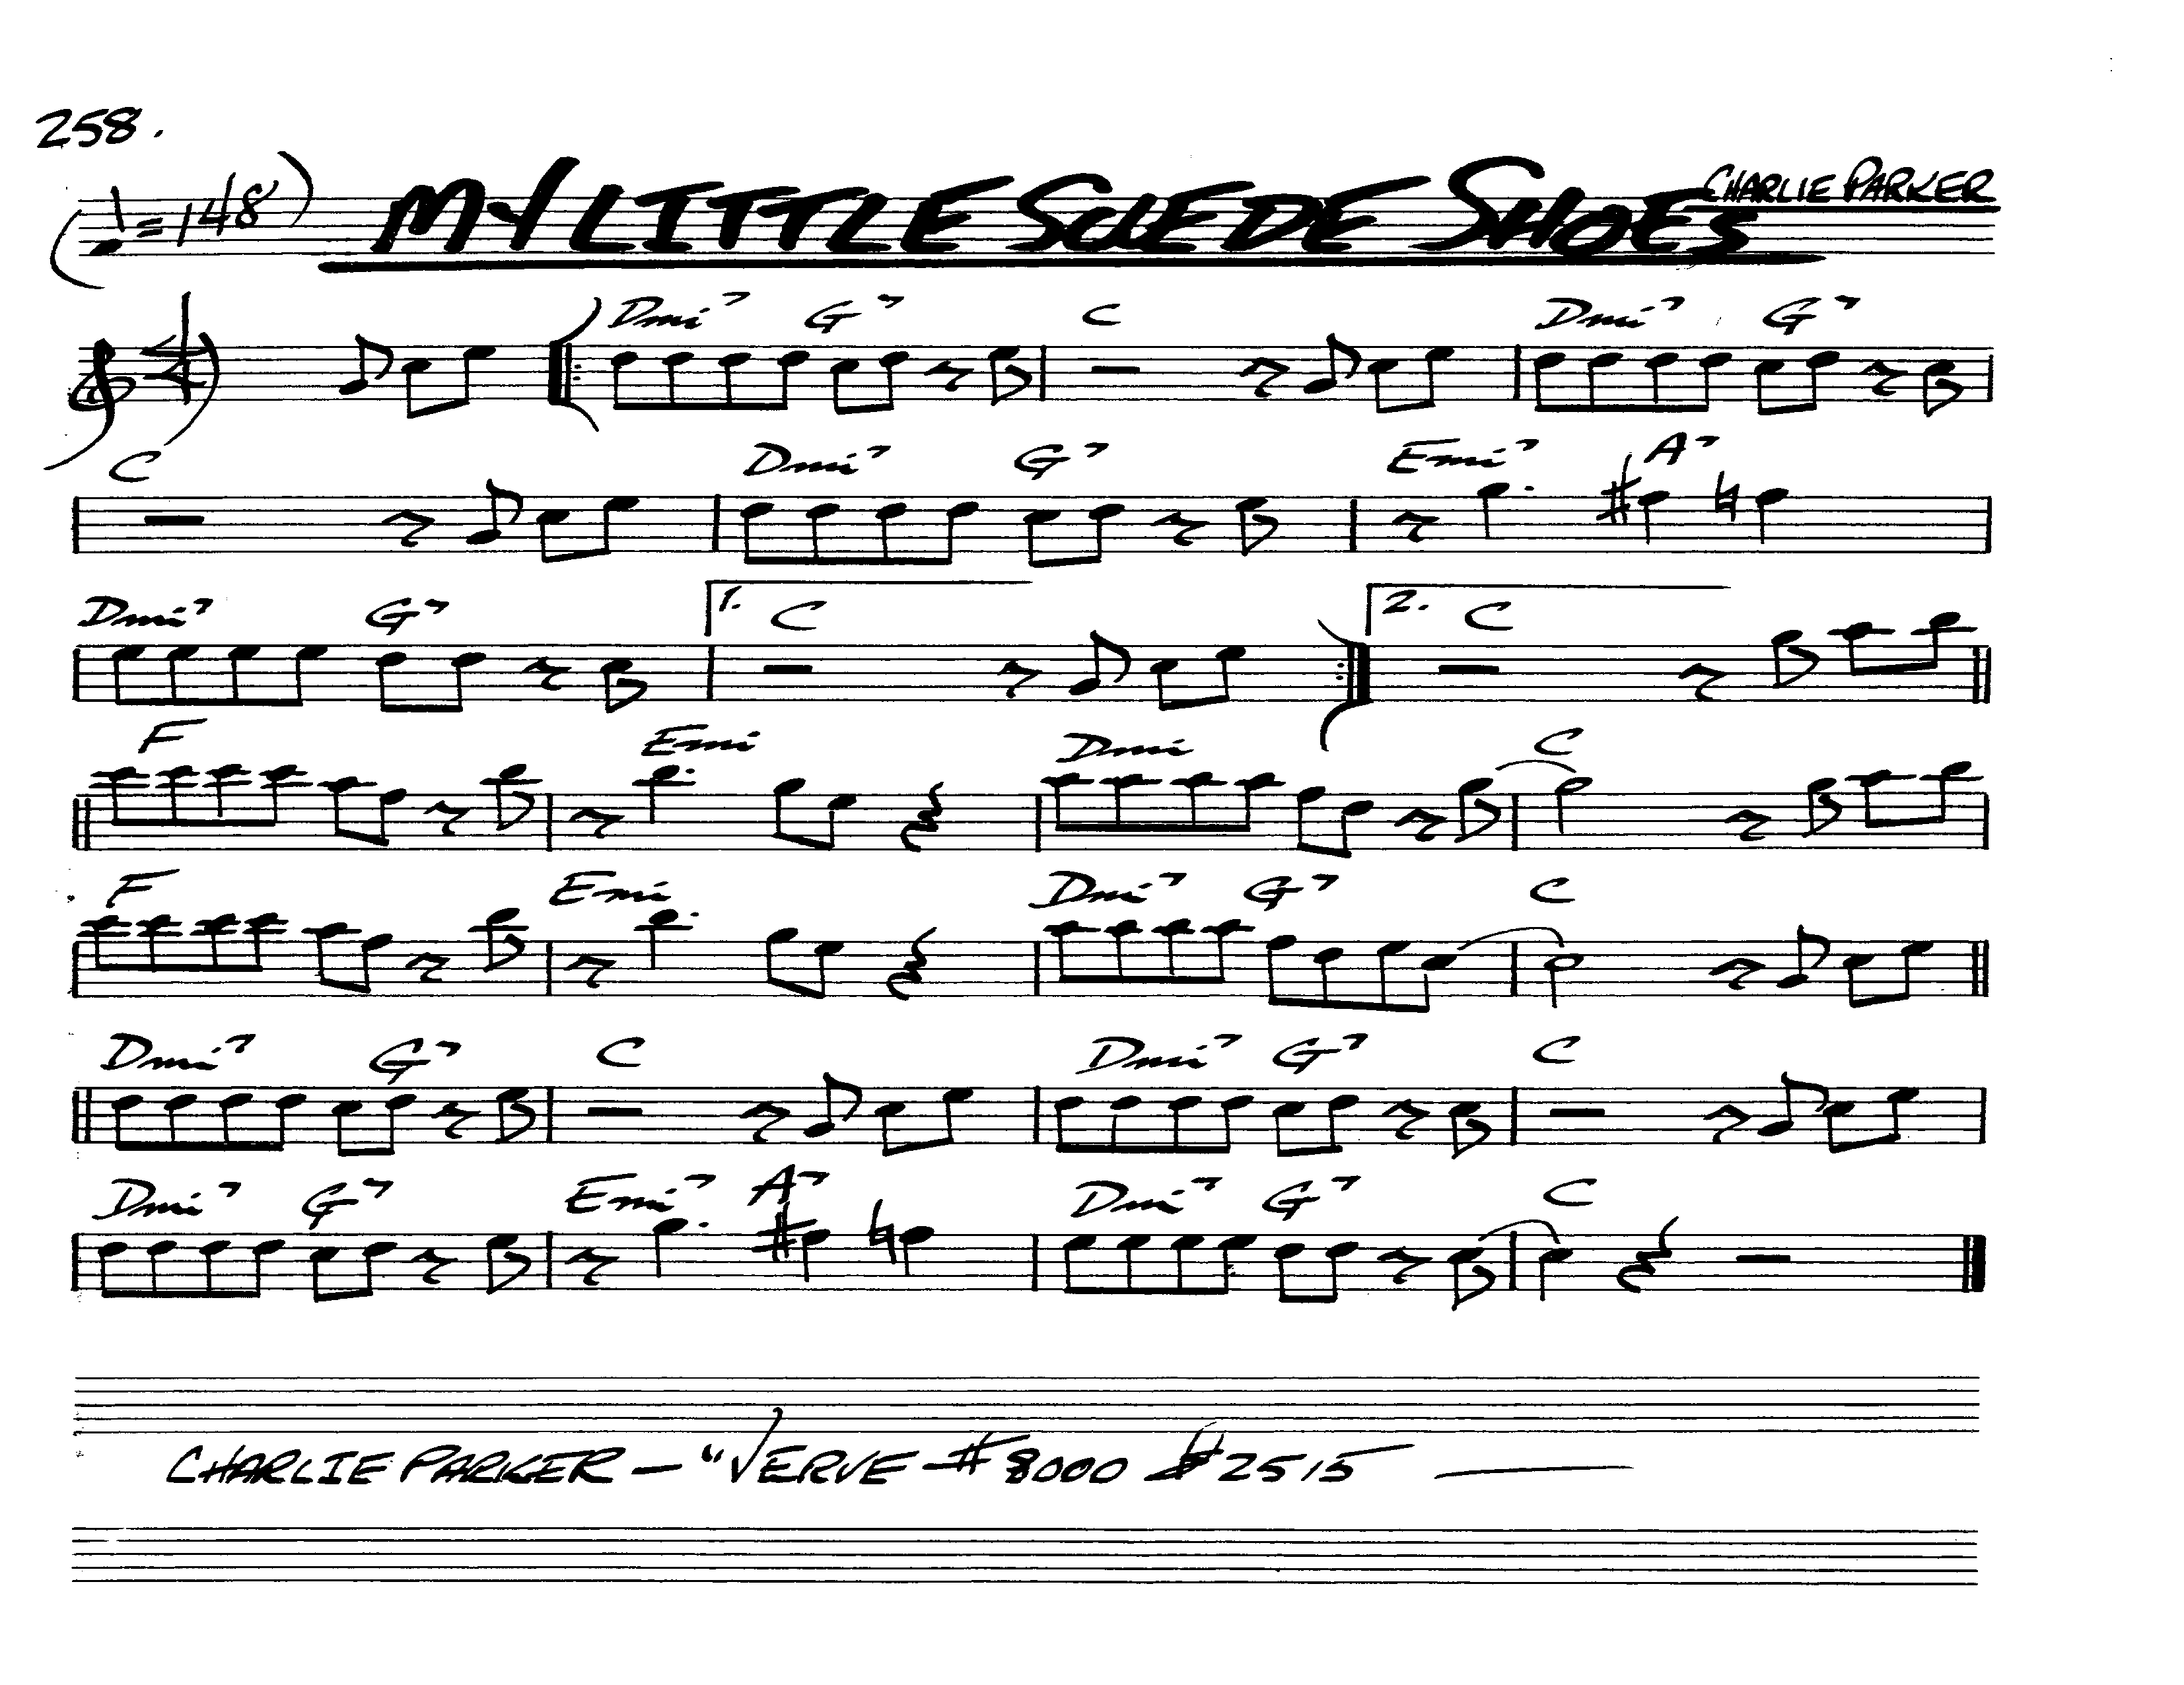 258.
(♩=148) MY LITTLE SUEDE SHOES CHARLIE PARKER
Dmi7 G7 C Dmi7 G7
C Dmi7 G7 Emi7 A7
Dmi7 G7 1. C 2. C
F Emi Dmi C
F Emi Dmi7 G7 C
Dmi7 G7 C Dmi7 G7 C
Dmi7 G7 Emi7 A7 Dmi7 G7 C
CHARLIE PARKER — "VERVE - # 8000 # 2515 —